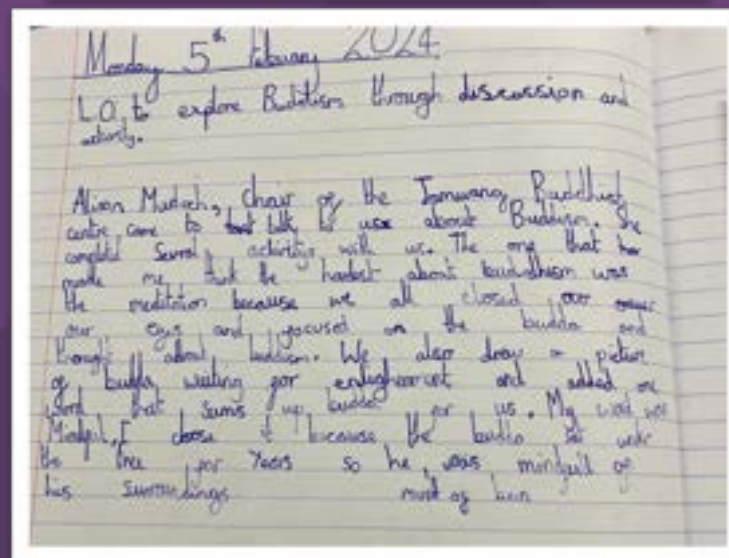 Monday 5th February 2024
L.O. to explore Buditism through discussion and
activity.
Alison, Chair of the Jamyang Buddhist
centre came to talk to us about Buddism. She
completed several activitys with us. The one that
made me think the hardest about buddhism was
the meditation because we all closed our
our eyes and focused on the budda and
thought about buddism. We also drew a picture
of budda waiting for enlightenment and added one
word that sums up budda for us. My word was
Mindful, I choose it because the budda sat under
the tree for years so he was mindful of
his surroundings most of